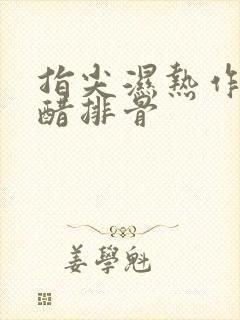 指尖濕熱作
醋排骨
姜學魁